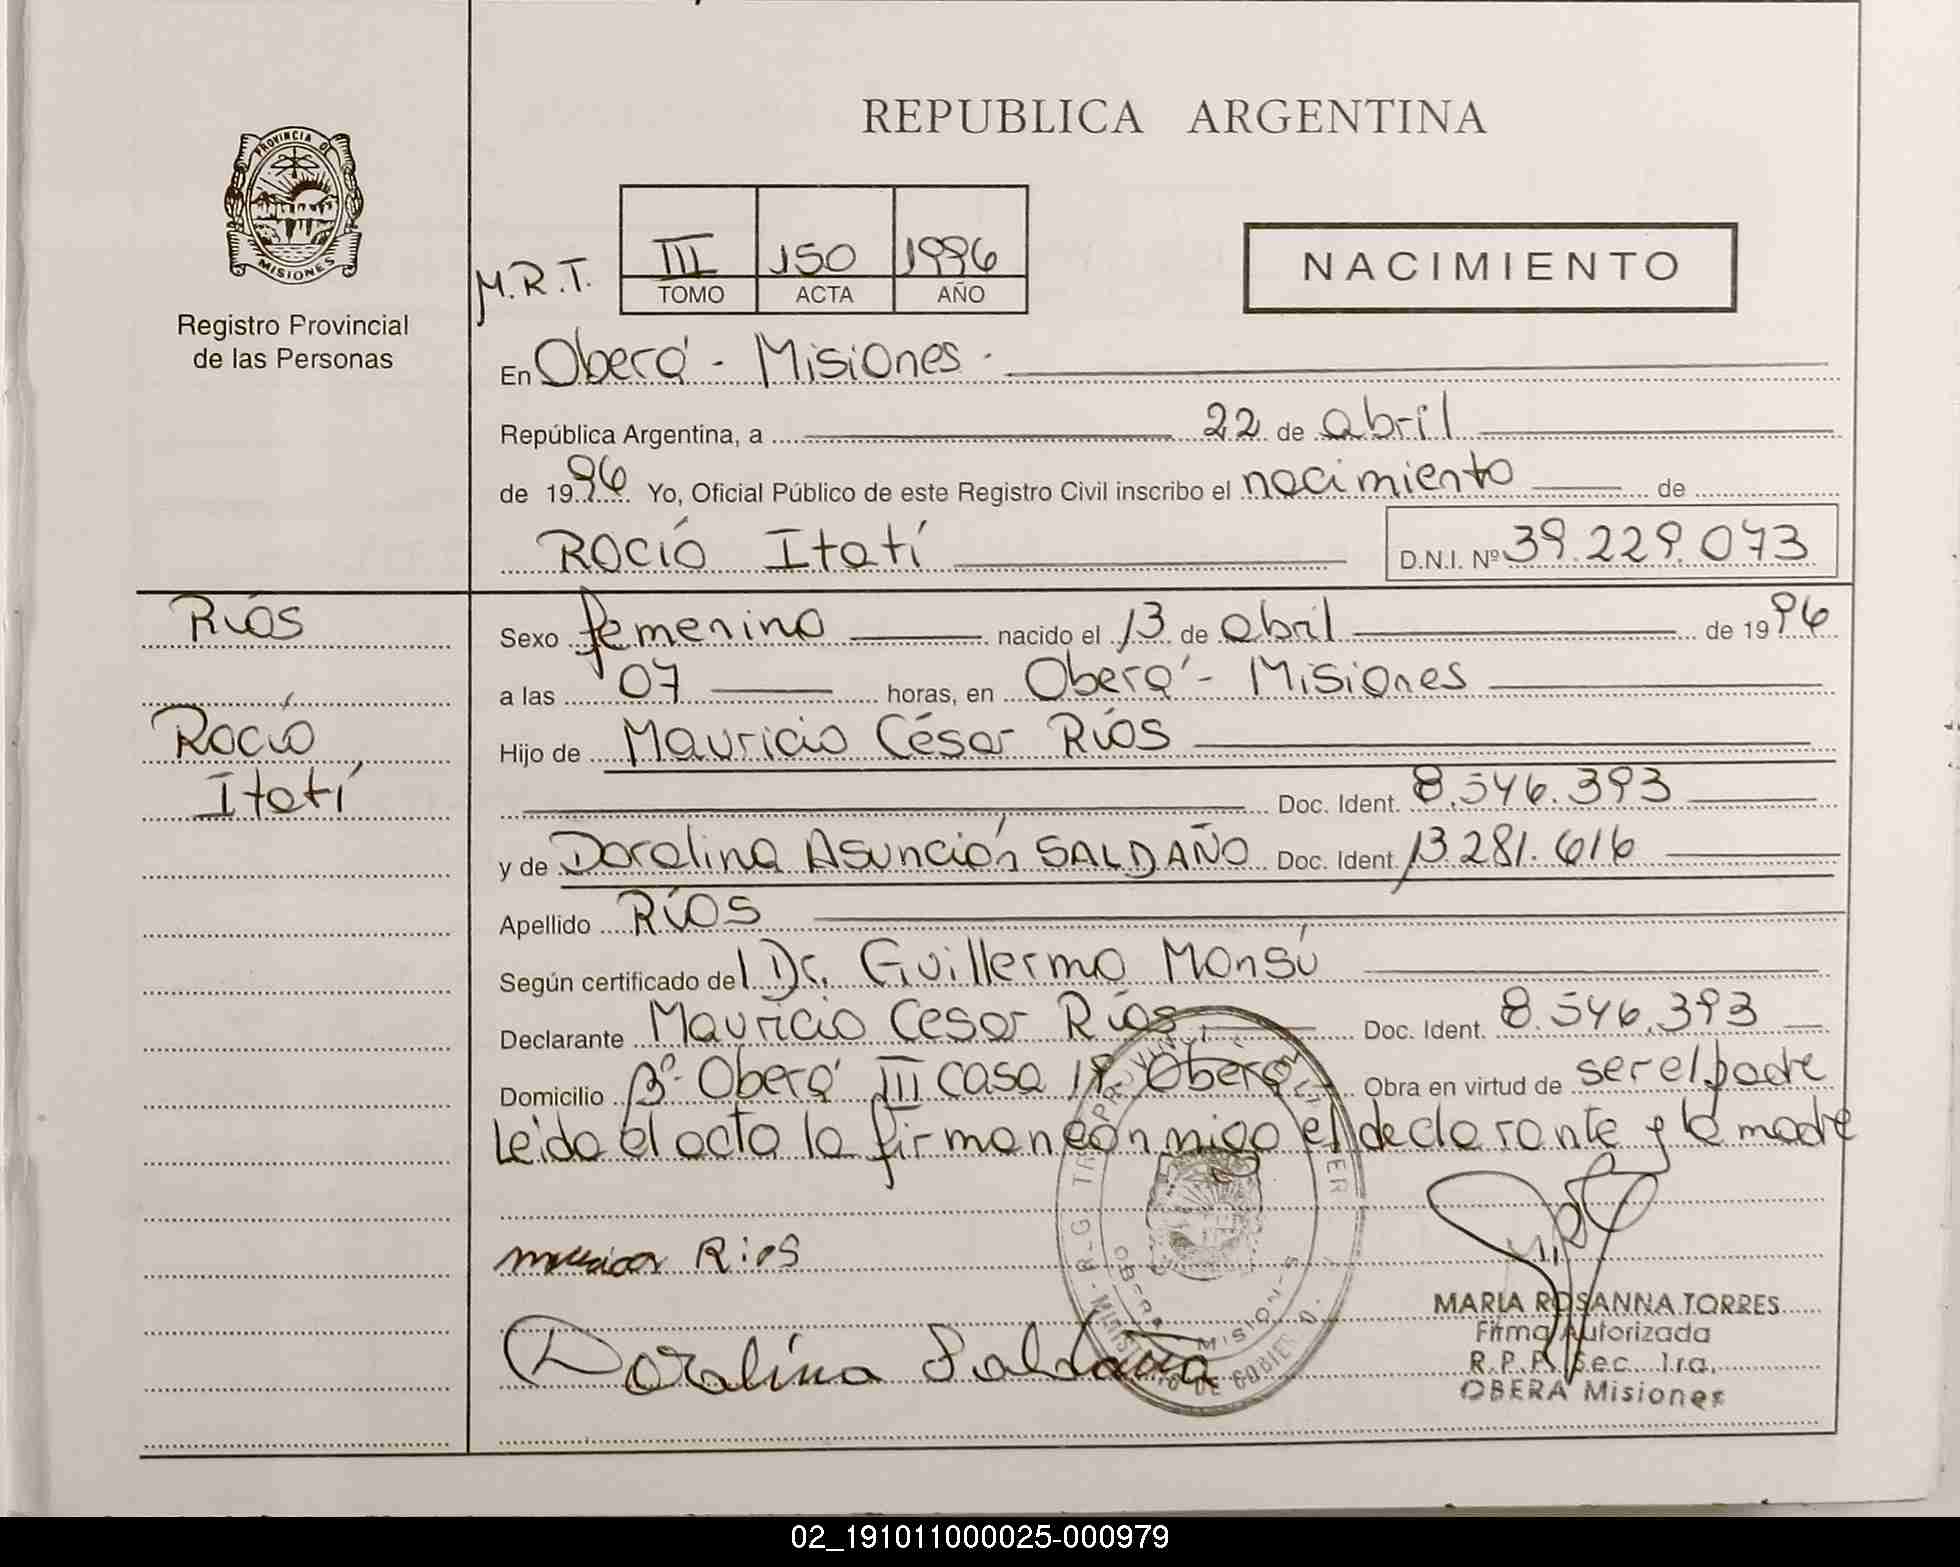 REPUBLICA ARGENTINA
PROVINCIA DE
MISIONES
Registro Provincial
de las Personas
M.R.T.
III 150 1996
TOMO ACTA AÑO
NACIMIENTO
En Oberá - Misiones.
República Argentina, a 22 de abril
de 1996 Yo, Oficial Público de este Registro Civil inscribo el nacimiento de
Rocío Itatí D.N.I. Nº 39.229.073
Ríos
Rocío
Itatí
Sexo femenino nacido el 13 de abril de 1996
a las 07 horas, en Oberá - Misiones
Hijo de Mauricio César Ríos
Doc. Ident. 8.546.393
y de Doralina Asunción SALDAÑO Doc. Ident. 13.281.616
Apellido Ríos
Según certificado del Dr. Guillermo Monsú
Declarante Mauricio Cesar Ríos Doc. Ident. 8.546.393
Domicilio Bº Oberá III casa 19. Oberá Obra en virtud de ser el padre
Leida el acta la firman conmigo el declarante y la madre
Rios
Doralina Saldaña
OBERA MISIONES
MARIA ROSANNA TORRES
Firma Autorizada
R.P.P. Sec. 1ra.
OBERA Misiones
02_191011000025-000979